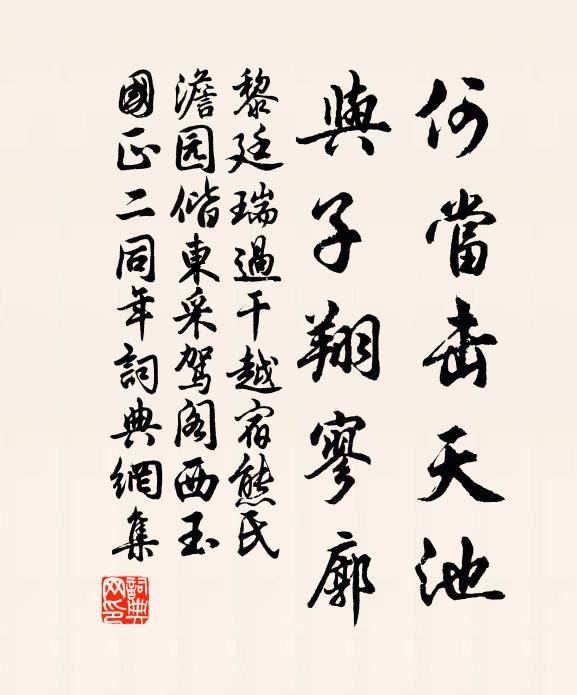 何當击天池
與子翔寥廓
黎廷瑞過干越宿熊氏
澹园偕東采駕阁西玉
國正二同年詞典網集
詞典网印